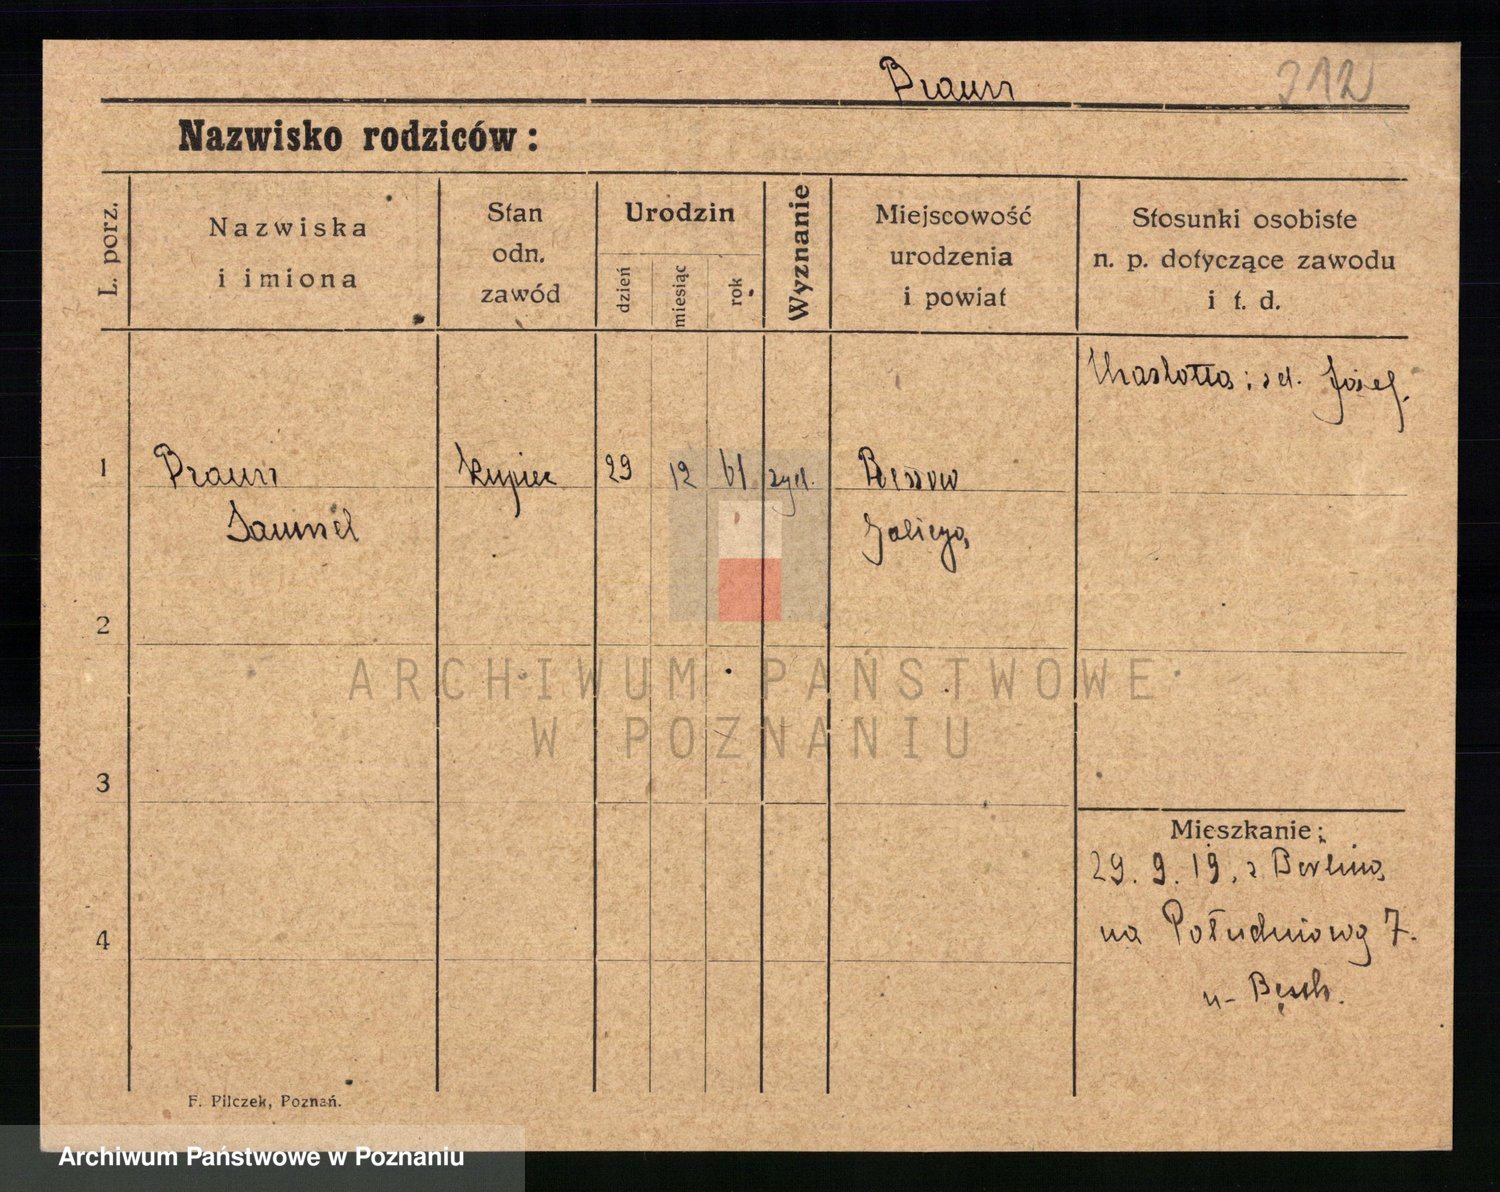 Braun
312
Nazwisko rodziców:
L. porz.
Nazwiska
i imiona
Stan
odn.
zawód
Urodzin
dzień
miesiąc
rok
Wyznanie
Miejscowość
urodzenia
i powiat
Stosunki osobiste
n. p. dotyczące zawodu
i t. d.
Józef.
1
Braun
kupiec
29
12
61
żyd.
Samuel
2
3
4
Mieszkanie:
29. 9. 19. z Berlina
na Południową 7.
u-
F. Pilczek, Poznań.
ARCHIWUM PAŃSTWOWE
W POZNANIU
Archiwum Państwowe w Poznaniu